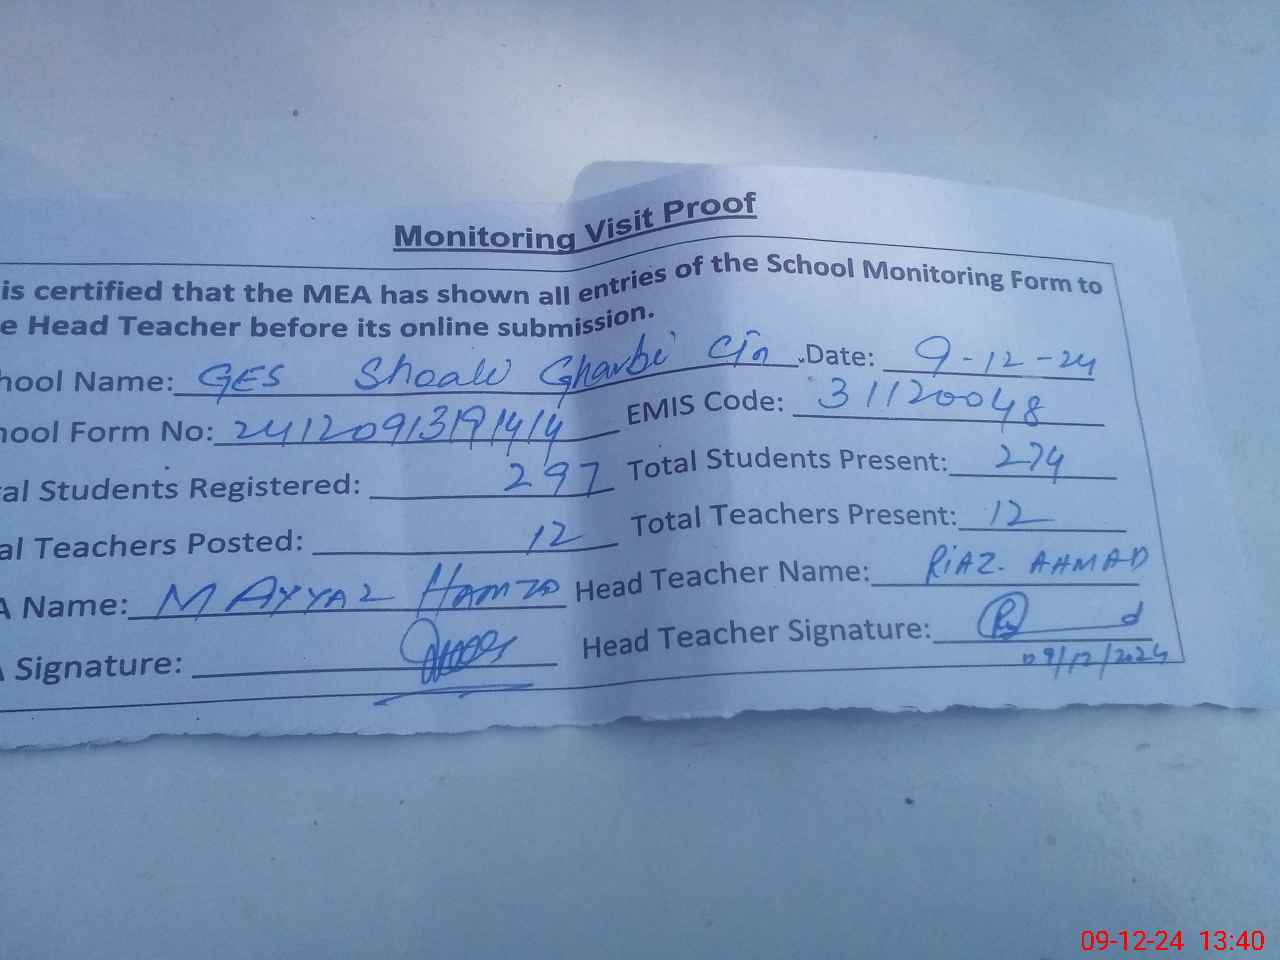 Monitoring Visit Proof
is certified that the MEA has shown all entries of the School Monitoring Form to
e Head Teacher before its online submission.
hool Name: GES Shoale Gharbi Cin Date: 9-12-24
hool Form No: 24120913191414 EMIS Code: 31120048
al Students Registered: 297 Total Students Present: 274
al Teachers Posted: 12 Total Teachers Present: 12
A Name: M AYYAZ Hamza Head Teacher Name: RiAZ. AHMAD
Signature: Head Teacher Signature:
09/12/2024
09-12-24 13:40